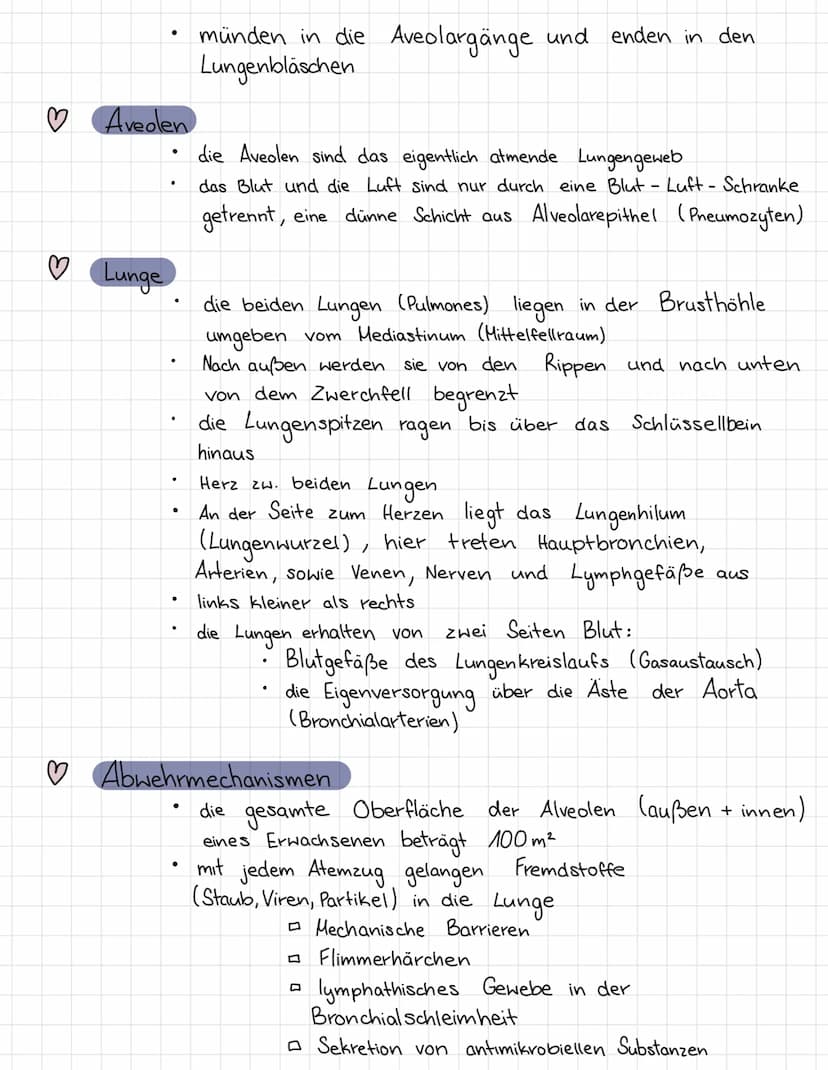 • münden in die Aveolargänge und enden in den
Lungenbläschen
Aveolen
• die Aveolen sind das eigentlich atmende Lungengeweb
• das Blut und die Luft sind nur durch eine Blut - Luft - Schranke
getrennt, eine dünne Schicht aus Alveolarepithel (Pneumozyten)
Lunge
• die beiden Lungen (Pulmones) liegen in der Brusthöhle
umgeben vom Mediastinum (Mittelfellraum)
• Nach außen werden sie von den Rippen und nach unten
von dem Zwerchfell begrenzt
• die Lungenspitzen ragen bis über das Schlüssellbein
hinaus
• Herz zw. beiden Lungen
• An der Seite zum Herzen liegt das Lungenhilum
(Lungenwurzel), hier treten Hauptbronchien,
Arterien, sowie Venen, Nerven und Lymphgefäße aus
• links kleiner als rechts
• die Lungen erhalten von zwei Seiten Blut:
• Blutgefäße des Lungenkreislaufs (Gasaustausch)
• die Eigenversorgung über die Äste der Aorta
(Bronchialarterien)
Abwehrmechanismen
• die gesamte Oberfläche der Alveolen (außen + innen)
eines Erwachsenen beträgt 100 m²
• mit jedem Atemzug gelangen Fremdstoffe
(Staub, Viren, Partikel) in die Lunge
▫ Mechanische Barrieren
▫ Flimmerhärchen
▫ lymphathisches Gewebe in der
Bronchialschleimheit
▫ Sekretion von antimikrobiellen Substanzen